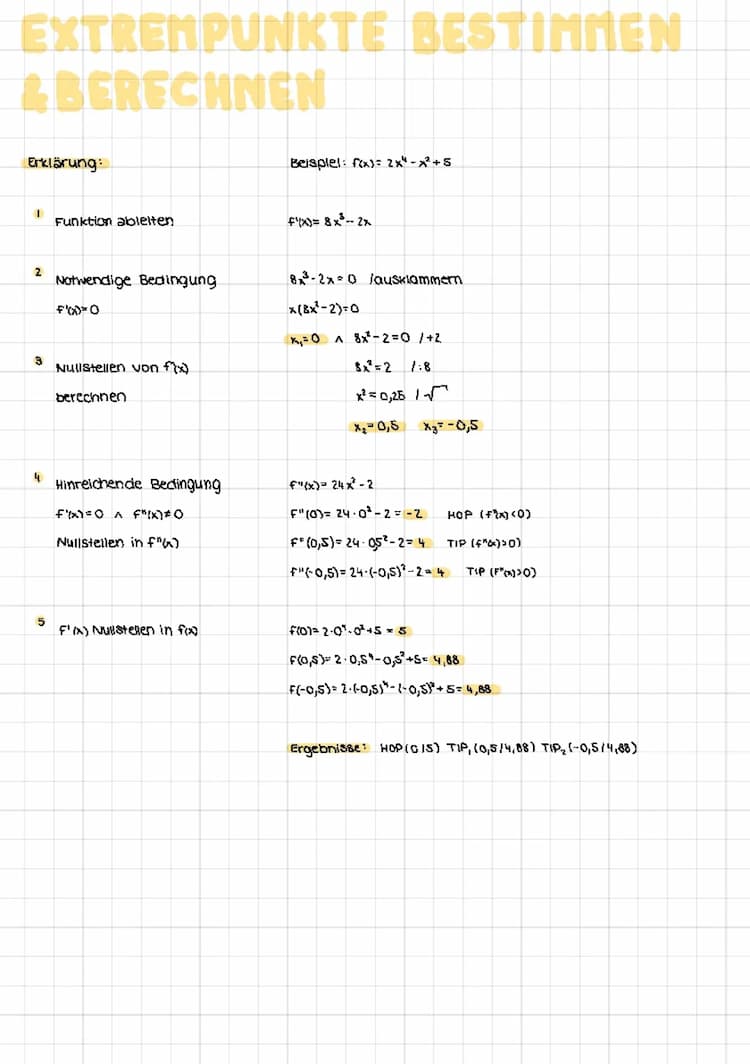 EXTREMPUNKTE BESTIMMEN
& BERECHNEN
Erklärung: Beispiel: f(x) = 2x⁴ - x² + 5
1 Funktion ableiten f'(x) = 8x³ - 2x
2 Notwendige Bedingung 8x³ - 2x = 0 /ausklammern
f'(x) = 0 x(8x² - 2) = 0
x₁ = 0 ∧ 8x² - 2 = 0 / +2
3 Nullstellen von f'(x) 8x² = 2 / :8
berechnen x² = 0,25 / √
x₂ = 0,5 x₃ = -0,5
4 Hinreichende Bedingung f''(x) = 24x² - 2
f'(x) = 0 ∧ f''(x) ≠ 0 f''(0) = 24 · 0² - 2 = -2 HOP (f''(x) < 0)
Nullstellen in f''(x) f''(0,5) = 24 · 0,5² - 2 = 4 TIP (f''(x) > 0)
f''(-0,5) = 24 · (-0,5)² - 2 = 4 TIP (f''(x) > 0)
5 f'(x) Nullstellen in f(x) f(0) = 2 · 0⁴ - 0² + 5 = 5
f(0,5) = 2 · 0,5⁴ - 0,5² + 5 = 4,88
f(-0,5) = 2 · (-0,5)⁴ - (-0,5)² + 5 = 4,88
Ergebnisse: HOP (0/5) TIP₁ (0,5/4,88) TIP₂ (-0,5/4,88)